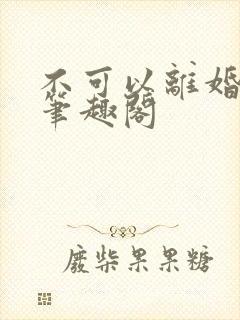 不可以離婚
筆趣閣
廢柴果果糖